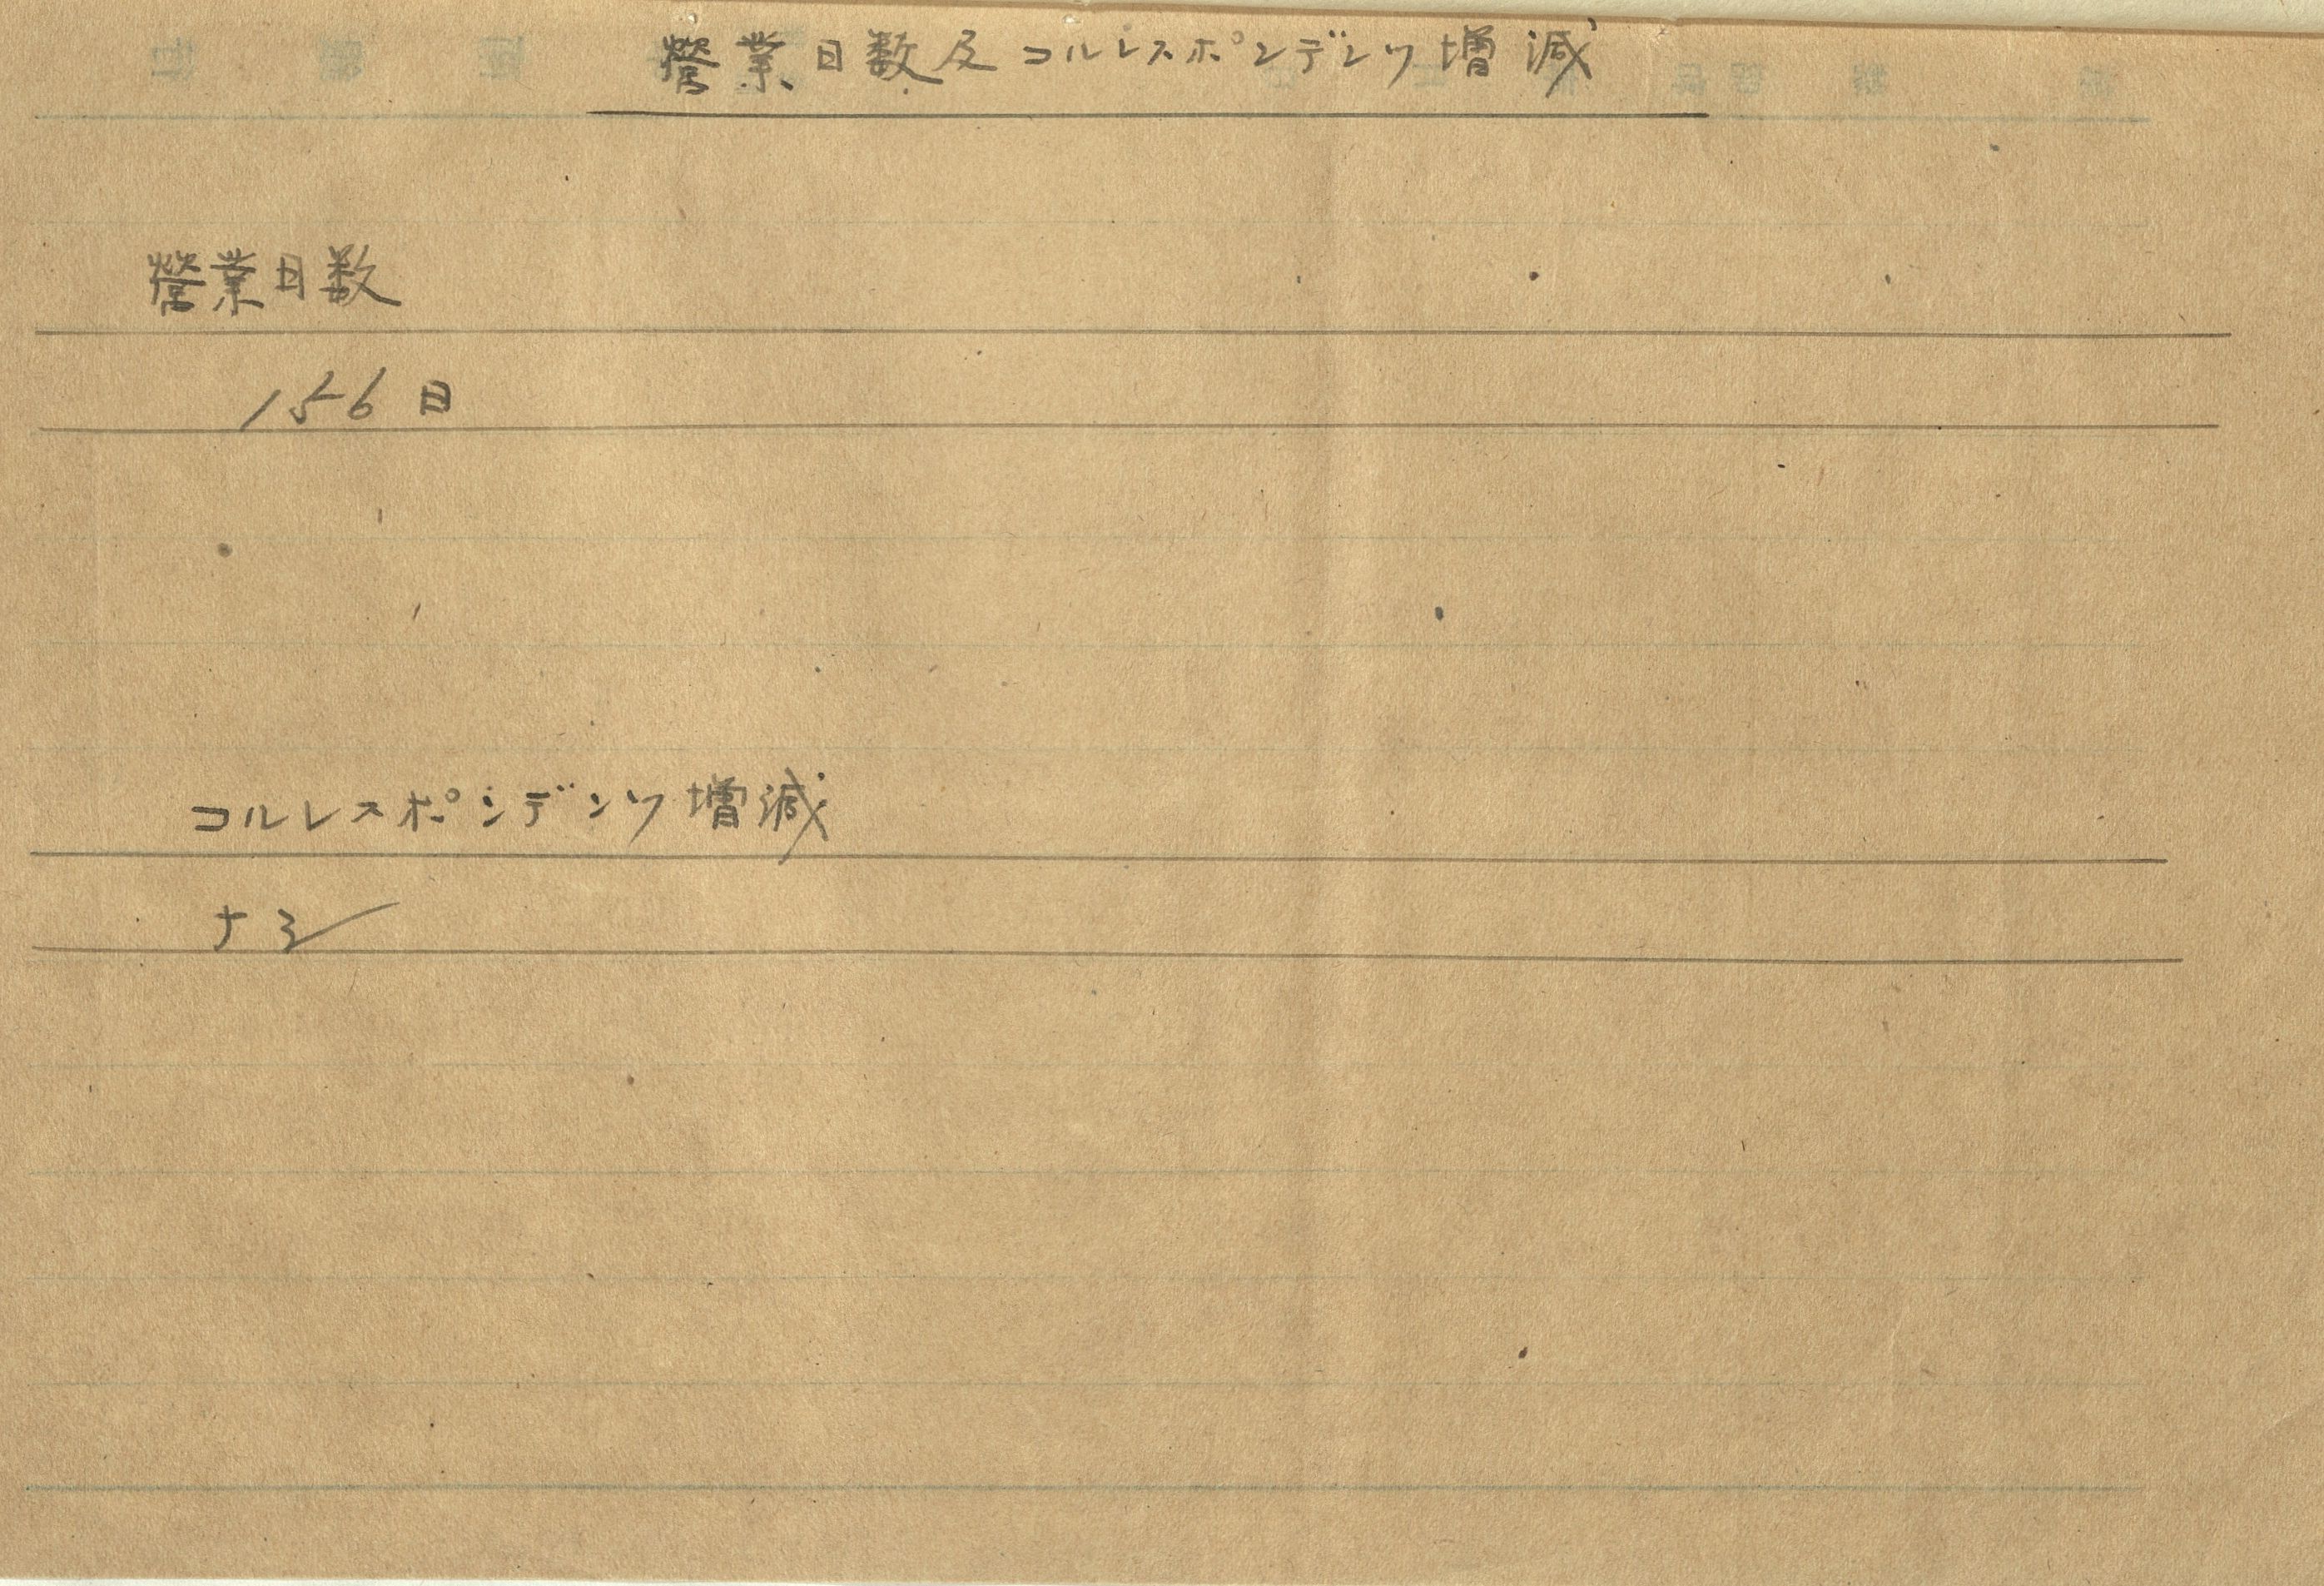 營業日数及コルレスポンデンツ増減
營業日数
156日
コルレスポンデンツ増減
ナシ